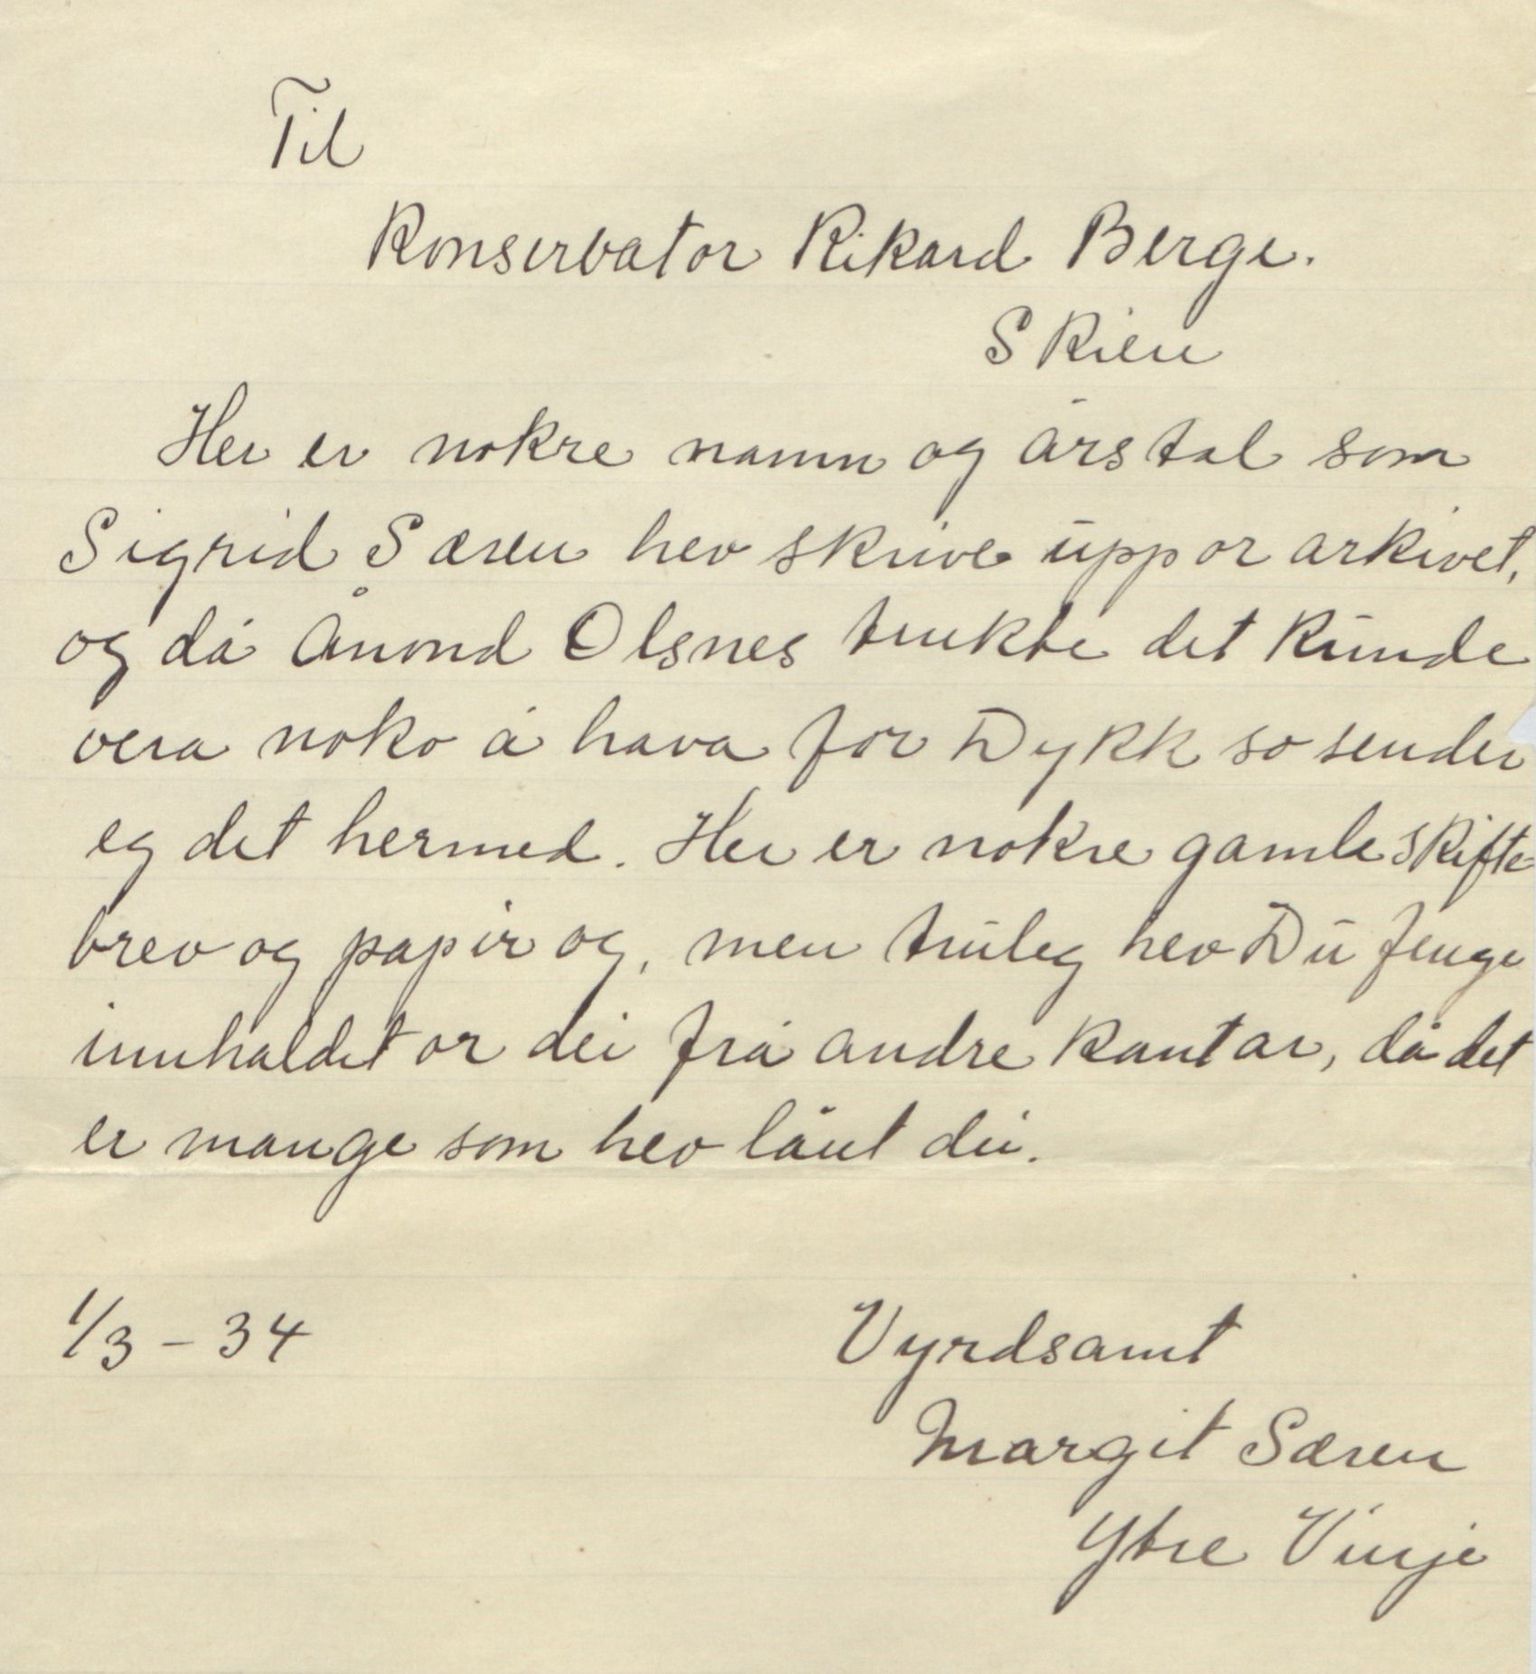 Til
Konservator Rikard Berge.
Skien
Her er nokre namn og årstal som
Sigrid Særen hev skrive upp or arkivet,
og då Ånond Olsnes trukte det kunde
vera noko å hava for Dykk so sender
eg det hermed. Her er nokre gamle skifte-
brev og papir og, men truleg hev Du fenge
innhaldet or dei frå andre kantar, då det
er mange som hev lånt dei.
1/3 - 34
Vyrdsamt
Margit Særen
Ytre Vinje